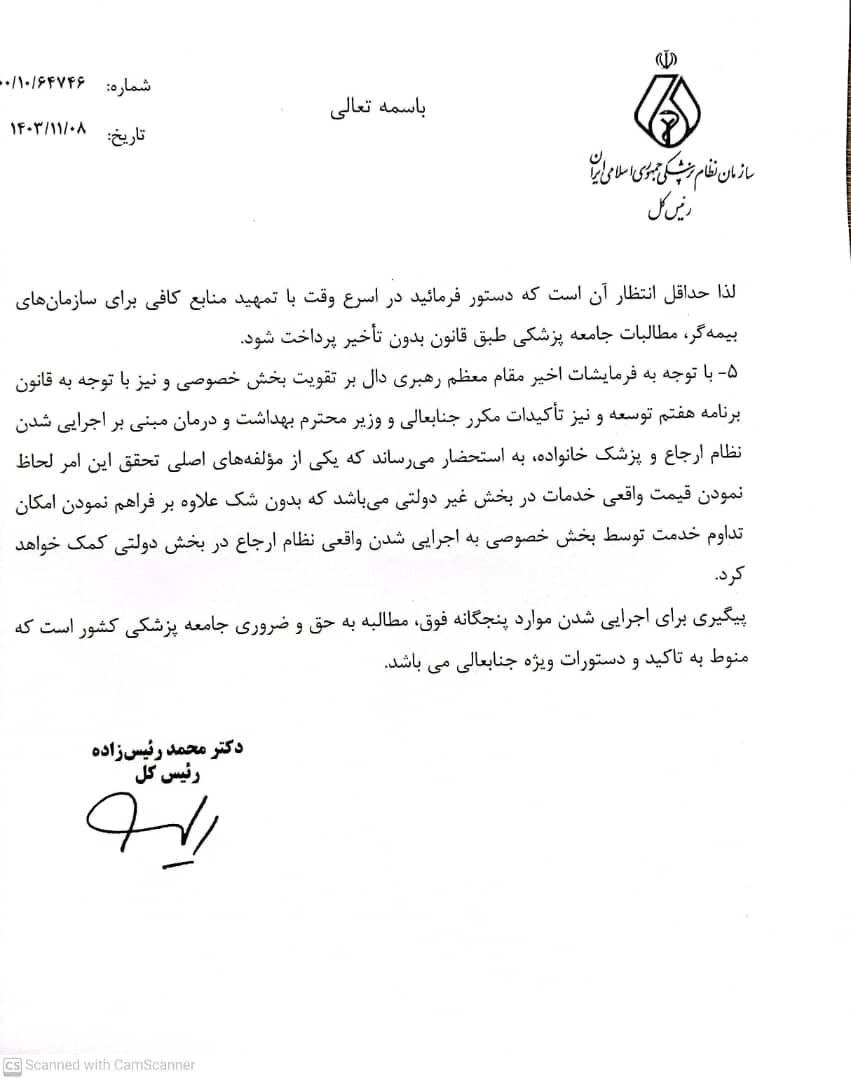 شماره: ۰۰/۱۰/۶۴۷۴۶
باسمه تعالی
تاریخ: ۱۴۰۳/۱۱/۰۸
سازمان نظام پزشکی جمهوری اسلامی ایران
رئیس کل
لذا حداقل انتظار آن است که دستور فرمائید در اسرع وقت با تمهید منابع کافی برای سازمان‌های
بیمه‌گر، مطالبات جامعه پزشکی طبق قانون بدون تأخیر پرداخت شود.
۵- با توجه به فرمایشات اخیر مقام معظم رهبری دال بر تقویت بخش خصوصی و نیز با توجه به قانون
برنامه هفتم توسعه و نیز تأکیدات مکرر جنابعالی و وزیر محترم بهداشت و درمان مبنی بر اجرایی شدن
نظام ارجاع و پزشک خانواده، به استحضار می‌رساند که یکی از مؤلفه‌های اصلی تحقق این امر لحاظ
نمودن قیمت واقعی خدمات در بخش غیر دولتی می‌باشد که بدون شک علاوه بر فراهم نمودن امکان
تداوم خدمت توسط بخش خصوصی به اجرایی شدن واقعی نظام ارجاع در بخش دولتی کمک خواهد
کرد.
پیگیری برای اجرایی شدن موارد پنجگانه فوق، مطالبه به حق و ضروری جامعه پزشکی کشور است که
منوط به تاکید و دستورات ویژه جنابعالی می باشد.
دکتر محمد رئیس‌زاده
رئیس کل
CS Scanned with CamScanner